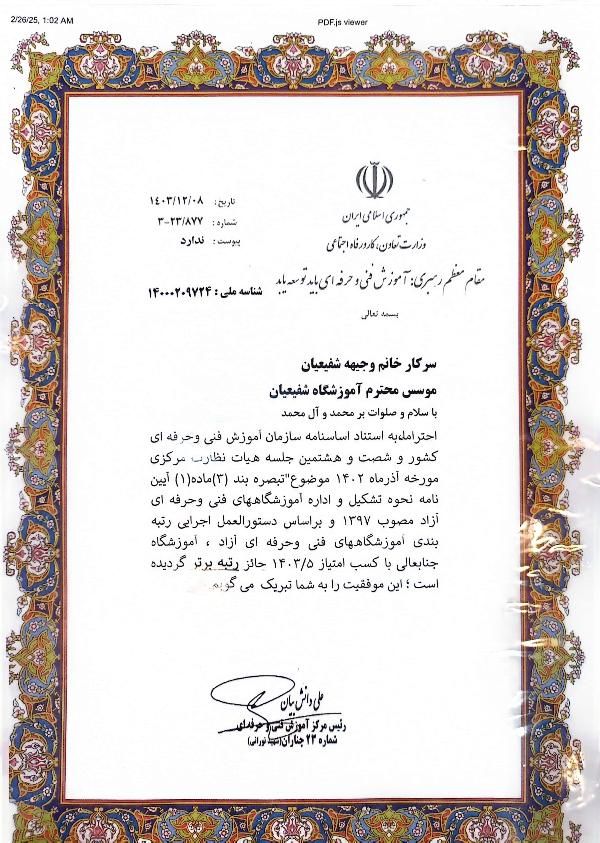 2/26/25, 1:02 AM
PDF.js viewer
جمهوری اسلامی ایران
وزارت تعاون، کار و رفاه اجتماعی
تاریخ: ۱۴۰۳/۱۲/۰۸
شماره: ۳-۲۳/۸۷۷
پیوست: ندارد
مقام معظم رهبری: آموزش فنی و حرفه ای باید توسعه یابد
شناسه ملی : ۱۴۰۰۰۲۰۹۷۲۴
بسمه تعالی
سرکار خانم وجیهه شفیعیان
موسس محترم آموزشگاه شفیعیان
با سلام و صلوات بر محمد و آل محمد
احتراما،به استناد اساسنامه سازمان آموزش فنی وحرفه ای
کشور و شصت و هشتمین جلسه هیات نظارت مرکزی
مورخه آذرماه ۱۴۰۲ موضوع"تبصره بند (۳)ماده(۱) آیین
نامه نحوه تشکیل و اداره آموزشگاههای فنی وحرفه ای
آزاد مصوب ۱۳۹۷ و براساس دستورالعمل اجرایی رتبه
بندی آموزشگاههای فنی وحرفه ای آزاد ، آموزشگاه
جنابعالی با کسب امتیاز ۱۴۰۳/۵ حائز رتبه برتر گردیده
است ؛ این موفقیت را به شما تبریک می گویم.
علی دانش بیان
رئیس مرکز آموزش فنی و حرفه ای
شماره ۲۳ چناران(شهید نورانی)